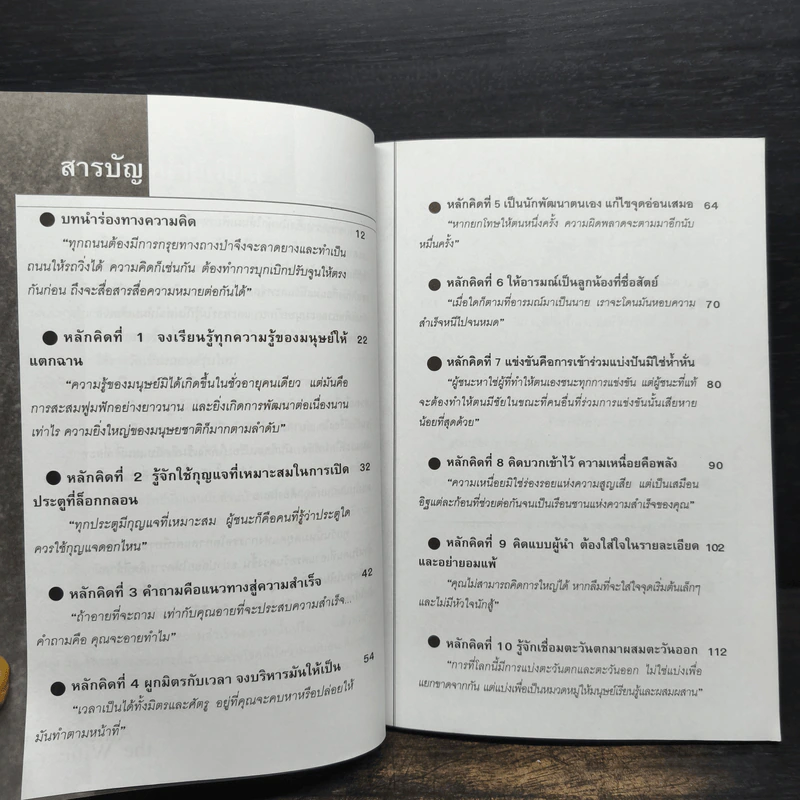 สารบัญ
บทนำร่องทางความคิด 12
“ทุกถนนต้องมีการกรุยทางถางป่าจึงจะลาดยางและทำเป็น
ถนนให้รถวิ่งได้ ความคิดก็เช่นกัน ต้องทำการบุกเบิกปรับจูนให้ตรง
กันก่อน ถึงจะสื่อสารสื่อความหมายต่อกันได้”
หลักคิดที่ 1 จงเรียนรู้ทุกความรู้ของมนุษย์ให้ 22
แตกฉาน
“ความรู้ของมนุษย์มิได้เกิดขึ้นในชั่วอายุคนเดียว แต่มันคือ
การสะสมฟูมฟักอย่างยาวนาน และยิ่งเกิดการพัฒนาต่อเนื่องนาน
เท่าไร ความยิ่งใหญ่ของมนุษยชาติก็มากตามลำดับ”
หลักคิดที่ 2 รู้จักใช้กุญแจที่เหมาะสมในการเปิด 32
ประตูที่ล็อกกลอน
“ทุกประตูมีกุญแจที่เหมาะสม ผู้ชนะก็คือคนที่รู้ว่าประตูใด
ควรใช้กุญแจดอกไหน”
หลักคิดที่ 3 คำถามคือแนวทางสู่ความสำเร็จ 42
“ถ้าอายที่จะถาม เท่ากับคุณอายที่จะประสบความสำเร็จ
คำถามคือ คุณจะอายทำไม”
หลักคิดที่ 4 ผูกมิตรกับเวลา จงบริหารมันให้เป็น 54
“เวลาเป็นได้ทั้งมิตรและศัตรู อยู่ที่คุณจะคบหาหรือปล่อยให้
มันทำตามหน้าที่”
หลักคิดที่ 5 เป็นนักพัฒนาตนเอง แก้ไขจุดอ่อนเสมอ 64
“หากยกโทษให้ตนหนึ่งครั้ง ความผิดพลาดจะตามมาอีกนับ
หมื่นครั้ง”
หลักคิดที่ 6 ให้อารมณ์เป็นลูกน้องที่ซื่อสัตย์
“เมื่อใดก็ตามที่อารมณ์มาเป็นนาย เราจะโดนมันหอบความ 70
สำเร็จหนีไปจนหมด”
หลักคิดที่ 7 แข่งขันคือการเข้าร่วมแบ่งปันมิใช่ห้ำหั่น
“ผู้ชนะหาใช่ผู้ที่ทำให้ตนเองชนะทุกการแข่งขัน แต่ผู้ชนะที่แท้ 80
จะต้องทำให้ตนมีชัยในขณะที่คนอื่นที่ร่วมการแข่งขันนั้นเสียหาย
น้อยที่สุดด้วย”
หลักคิดที่ 8 คิดบวกเข้าไว้ ความเหนื่อยคือพลัง 90
“ความเหนื่อยมิใช่ร่องรอยแห่งความสูญเสีย แต่เป็นเสมือน
อิฐแต่ละก้อนที่ช่วยต่อกันจนเป็นเรือนชานแห่งความสำเร็จของคุณ”
หลักคิดที่ 9 คิดแบบผู้นำ ต้องใส่ใจในรายละเอียด 102
และอย่ายอมแพ้
“คุณไม่สามารถคิดการใหญ่ได้ หากลืมที่จะใส่ใจจุดเริ่มต้นเล็กๆ
และไม่มีหัวใจนักสู้”
หลักคิดที่ 10 รู้จักเชื่อมตะวันตกมาผสมตะวันออก 112
“การที่โลกนี้มีการแบ่งตะวันตกและตะวันออก ไม่ใช่แบ่งเพื่อ
แยกขาดจากกัน แต่แบ่งเพื่อเป็นหมวดหมู่ให้มนุษย์เรียนรู้และผสมผสาน”